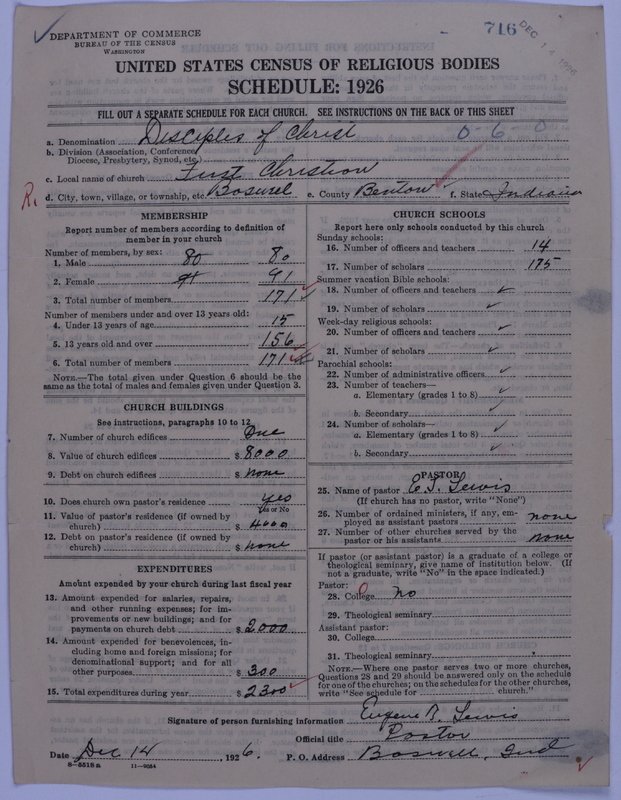 DEPARTMENT OF COMMERCE
BUREAU OF THE CENSUS
WASHINGTON
716
DEC 14 1926
UNITED STATES CENSUS OF RELIGIOUS BODIES
SCHEDULE: 1926
FILL OUT A SEPARATE SCHEDULE FOR EACH CHURCH. SEE INSTRUCTIONS ON THE BACK OF THIS SHEET
a. Denomination Disciples of Christ 0-6-0
b. Division (Association, Conference, Diocese, Presbytery, Synod, etc.)
c. Local name of church First Christian
R. d. City, town, village, or township, etc. Boswell e. County Benton f. State Indiana
MEMBERSHIP
Report number of members according to definition of member in your church
Number of members, by sex:
1. Male 80 80
2. Female 91 91
3. Total number of members 171
Number of members under and over 13 years old:
4. Under 13 years of age 15
5. 13 years old and over 156
6. Total number of members 171
NOTE.—The total given under Question 6 should be the same as the total of males and females given under Question 3.
CHURCH BUILDINGS
See instructions, paragraphs 10 to 12
7. Number of church edifices One
8. Value of church edifices $ 8000
9. Debt on church edifices $ none
10. Does church own pastor's residence? yes
Yes or No
11. Value of pastor's residence (if owned by church) $ 4000
12. Debt on pastor's residence (if owned by church) $ none
EXPENDITURES
Amount expended by your church during last fiscal year
13. Amount expended for salaries, repairs, and other running expenses; for improvements or new buildings; and for payments on church debt $ 2000
14. Amount expended for benevolences, including home and foreign missions; for denominational support; and for all other purposes $ 300
15. Total expenditures during year $ 2300
CHURCH SCHOOLS
Report here only schools conducted by this church
Sunday schools:
16. Number of officers and teachers 14
17. Number of scholars 175
Summer vacation Bible schools:
18. Number of officers and teachers
19. Number of scholars
Week-day religious schools:
20. Number of officers and teachers
21. Number of scholars
Parochial schools:
22. Number of administrative officers
23. Number of teachers—
a. Elementary (grades 1 to 8)
b. Secondary
24. Number of scholars—
a. Elementary (grades 1 to 8)
b. Secondary
PASTOR
25. Name of pastor E. T. Lewis
(If church has no pastor, write "None")
26. Number of ordained ministers, if any, employed as assistant pastors none
27. Number of other churches served by the pastor or his assistants none
If pastor (or assistant pastor) is a graduate of a college or theological seminary, give name of institution below. (If not a graduate, write "No" in the space indicated.)
Pastor:
28. College no
29. Theological seminary
Assistant pastor:
30. College
31. Theological seminary
NOTE.—Where one pastor serves two or more churches, Questions 28 and 29 should be answered only on the schedule for one of the churches; on the schedules for the other churches, write "See schedule for church."
Signature of person furnishing information Eugene T. Lewis
Official title Pastor
Date Dec 14, 1926. P. O. Address Boswell, Ind
8-5518 a 11-9084